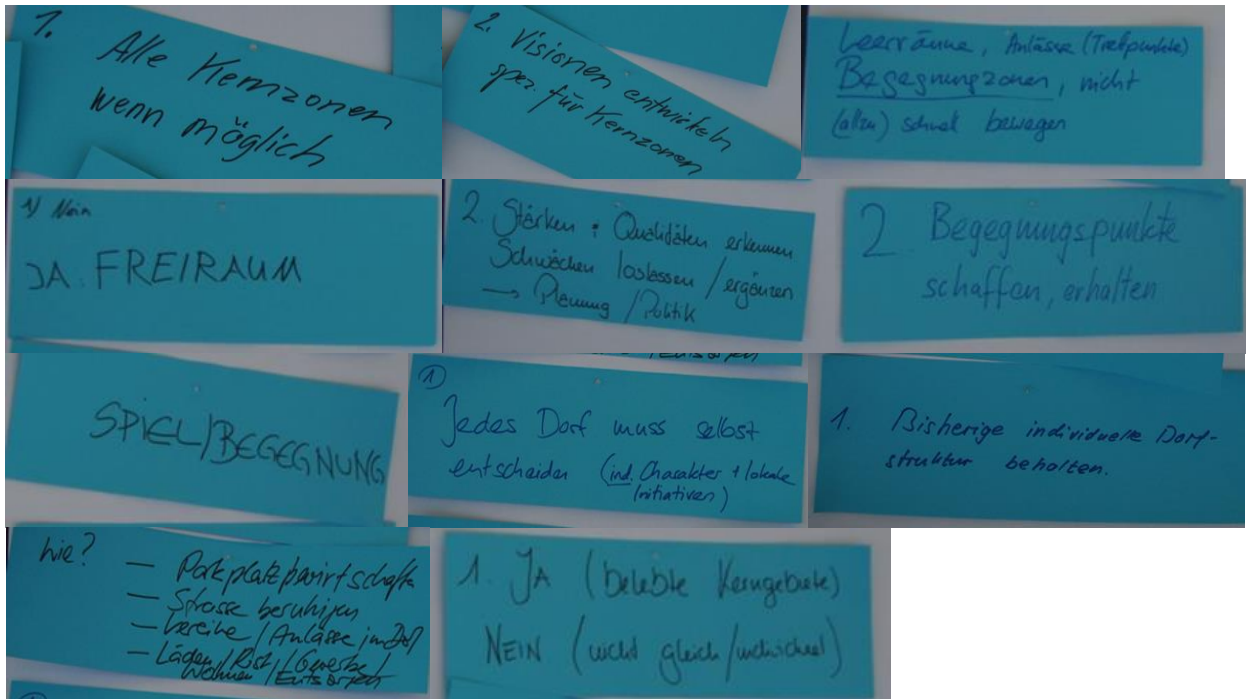 1. Alle Kernzonen
wenn möglich
2. Visionen entwickeln
spez. für Kernzonen
Leerräume, Anlässe (Treffpunkte)
Begegnungzonen, nicht
(allzu) schnell bewegen
1) Nein
JA. FREIRAUM
2. Stärken + Qualitäten erkennen
Schwächen loslassen / ergänzen
→ Planung / Politik
2 Begegnungspunkte
schaffen, erhalten
SPIEL/BEGEGNUNG
1 Jedes Dorf muss selbst
entscheiden (ind. Charakter + lokale
Initiativen)
1. Bisherige individuelle Dorf-
struktur behalten.
wie? — Parkplatzbewirtschaft
— Strasse beruhigen
— Vereine / Anlässe im Dorf
— Läden / Rist / Gewerbe /
Wohnen / Entsorgen
1. JA (belebte Kerngebiete)
NEIN (nicht gleich/individuel)